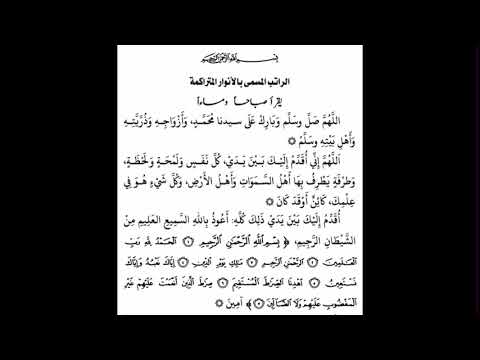 بسم الله الرحمن الرحيم
الراتب المسمى بالأنوار المتراكمة
يقرأ صباحاً ومساءاً
اللَّهُمَّ صَلِّ وسَلِّم وَبَارِكْ عَلَى سيدنا مُحَمَّدٍ، وَأَزْوَاجِهِ وَذُرِّيَّتِهِ
وَأَهْلِ بَيْتِهِ وَسَلِّمْ ۞
اَللَّهُمَّ إِنِّي أُقَدِّمُ إِلَيْكَ بَيْنَ يَدَيْ، كُلِّ نَفَسٍ وَلَمْحَةٍ وَلَحْظَةٍ،
وَطَرْفَةٍ يَطْرِفُ بِهَا أَهْلُ السَّمَوَاتِ وَأَهْلُ الأَرْضِ، وَكُلِّ شَيْءٍ هُوَ فِي
عِلْمِكَ، كَائِنٌ أَوْقَدْ كَانَ ۞
أُقَدِّمُ إِلَيْكَ بَيْنَ يَدَيْ ذَلِكَ كُلِّهِ. أَعُوذُ بِاللهِ السَّمِيعِ العَلِيمِ مِنَ
الشَّيْطَانِ الرَّجِيمِ، ﴿ بِسْمِ اللَّهِ الرَّحْمَٰنِ الرَّحِيمِ ۝ الْحَمْدُ لِلَّهِ رَبِّ
الْعَالَمِينَ ۝ الرَّحْمَٰنِ الرَّحِيمِ ۝ مَالِكِ يَوْمِ الدِّينِ ۝ إِيَّاكَ نَعْبُدُ وَإِيَّاكَ
نَسْتَعِينُ ۝ اهْدِنَا الصِّرَاطَ الْمُسْتَقِيمَ ۝ صِرَاطَ الَّذِينَ أَنْعَمْتَ عَلَيْهِمْ غَيْرِ
الْمَغْضُوبِ عَلَيْهِمْ وَلَا الضَّالِّينَ ۝ ﴾ آمِينَ ۞